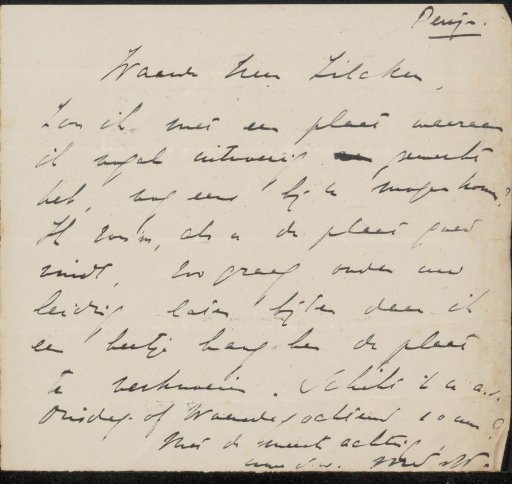 Waarde Heer Zilcken,
Zou ik met een plaat waaraan
ik nogal uitvoerig gewerkt
heb, nog eens bij u mogen komen?
Ik zou'm, als u de plaat goed
vindt, zoo graag onder uw
leiding laten bijten daar ik
een beetje bang ben de plaat
te verknoeien. Schikt 't u a.s.
Dinsdag- of Woensdagochtend 10 uur?
Met de meeste achting